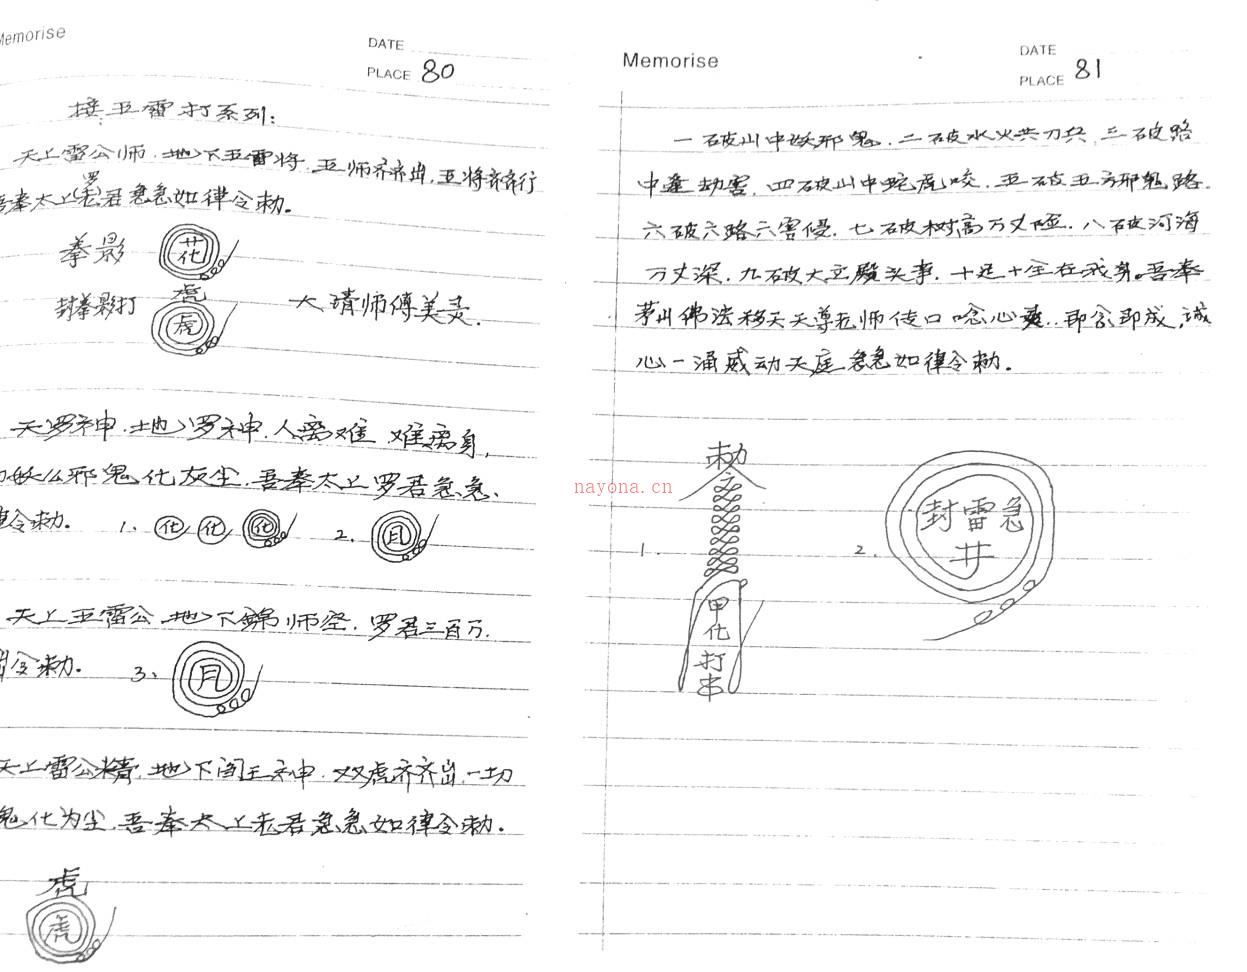 Memorise
DATE
PLACE 80
接五雷打系列：
天上雷公师.地下五雷将.五师齐齐出.五将齐齐行
吾奉太上老(罗)君急急如律令敕。
拳影
花
封拳影打
虎
虎
大请师傅美灵.
天罗神.地罗神.人离难 难离身,
妖么邪鬼化灰尘.吾奉太上罗君急急、
律令敕。
1. 化 化 化 2. 月
天上五雷公 地下 师 .罗君三百万.
令敕。 3、 月
天上雷公精.地下阎王神.双虎齐齐出.一切
鬼化为尘.吾奉太上老君急急如律令敕.
虎
虎
Memorise
DATE
PLACE 81
一破山中妖邪鬼.二破水火共刀兵.三破路
中逢劫害.四破山中蛇虎咬.五破五方邪鬼路.
六破六路六害侵.七破树高万丈 .八破河海
万丈深.九破大 殿头事.十足十全在我身。吾奉
茅山佛法移天天尊老师传口唸心 ..即念即成,诚
心一涌威动天庭急急如律令敕。
敕
1.
甲
化
打
串
2.
封雷急
井
nayona.cn